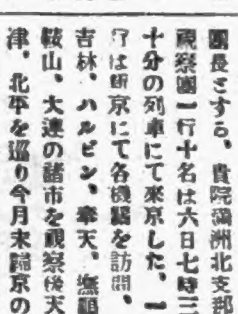 團長とする。貴院滿洲北支部
視察團一行十名は六日七時三
十分の列車にて來京した、一
行は新京にて各機關を訪問、
吉林、ハルビン、奉天、撫順
鞍山、大連の諸市を視察後天
津、北平を巡り今月末歸京の